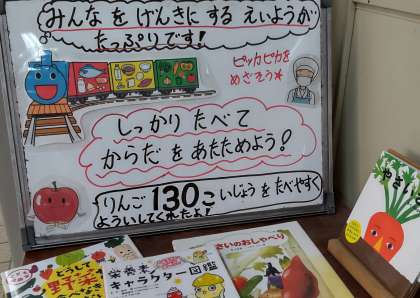 みんなを げんきにする えいようが
たっぷりです!
ピッカピカを
めざそう
しっかり たべて
からだ を あたためよう!
りんご 130こ いじょうを たべやすく
よういしてくれたよ!
野菜
栄養素
キャラクター図鑑
やさいのおしゃべり
やさい